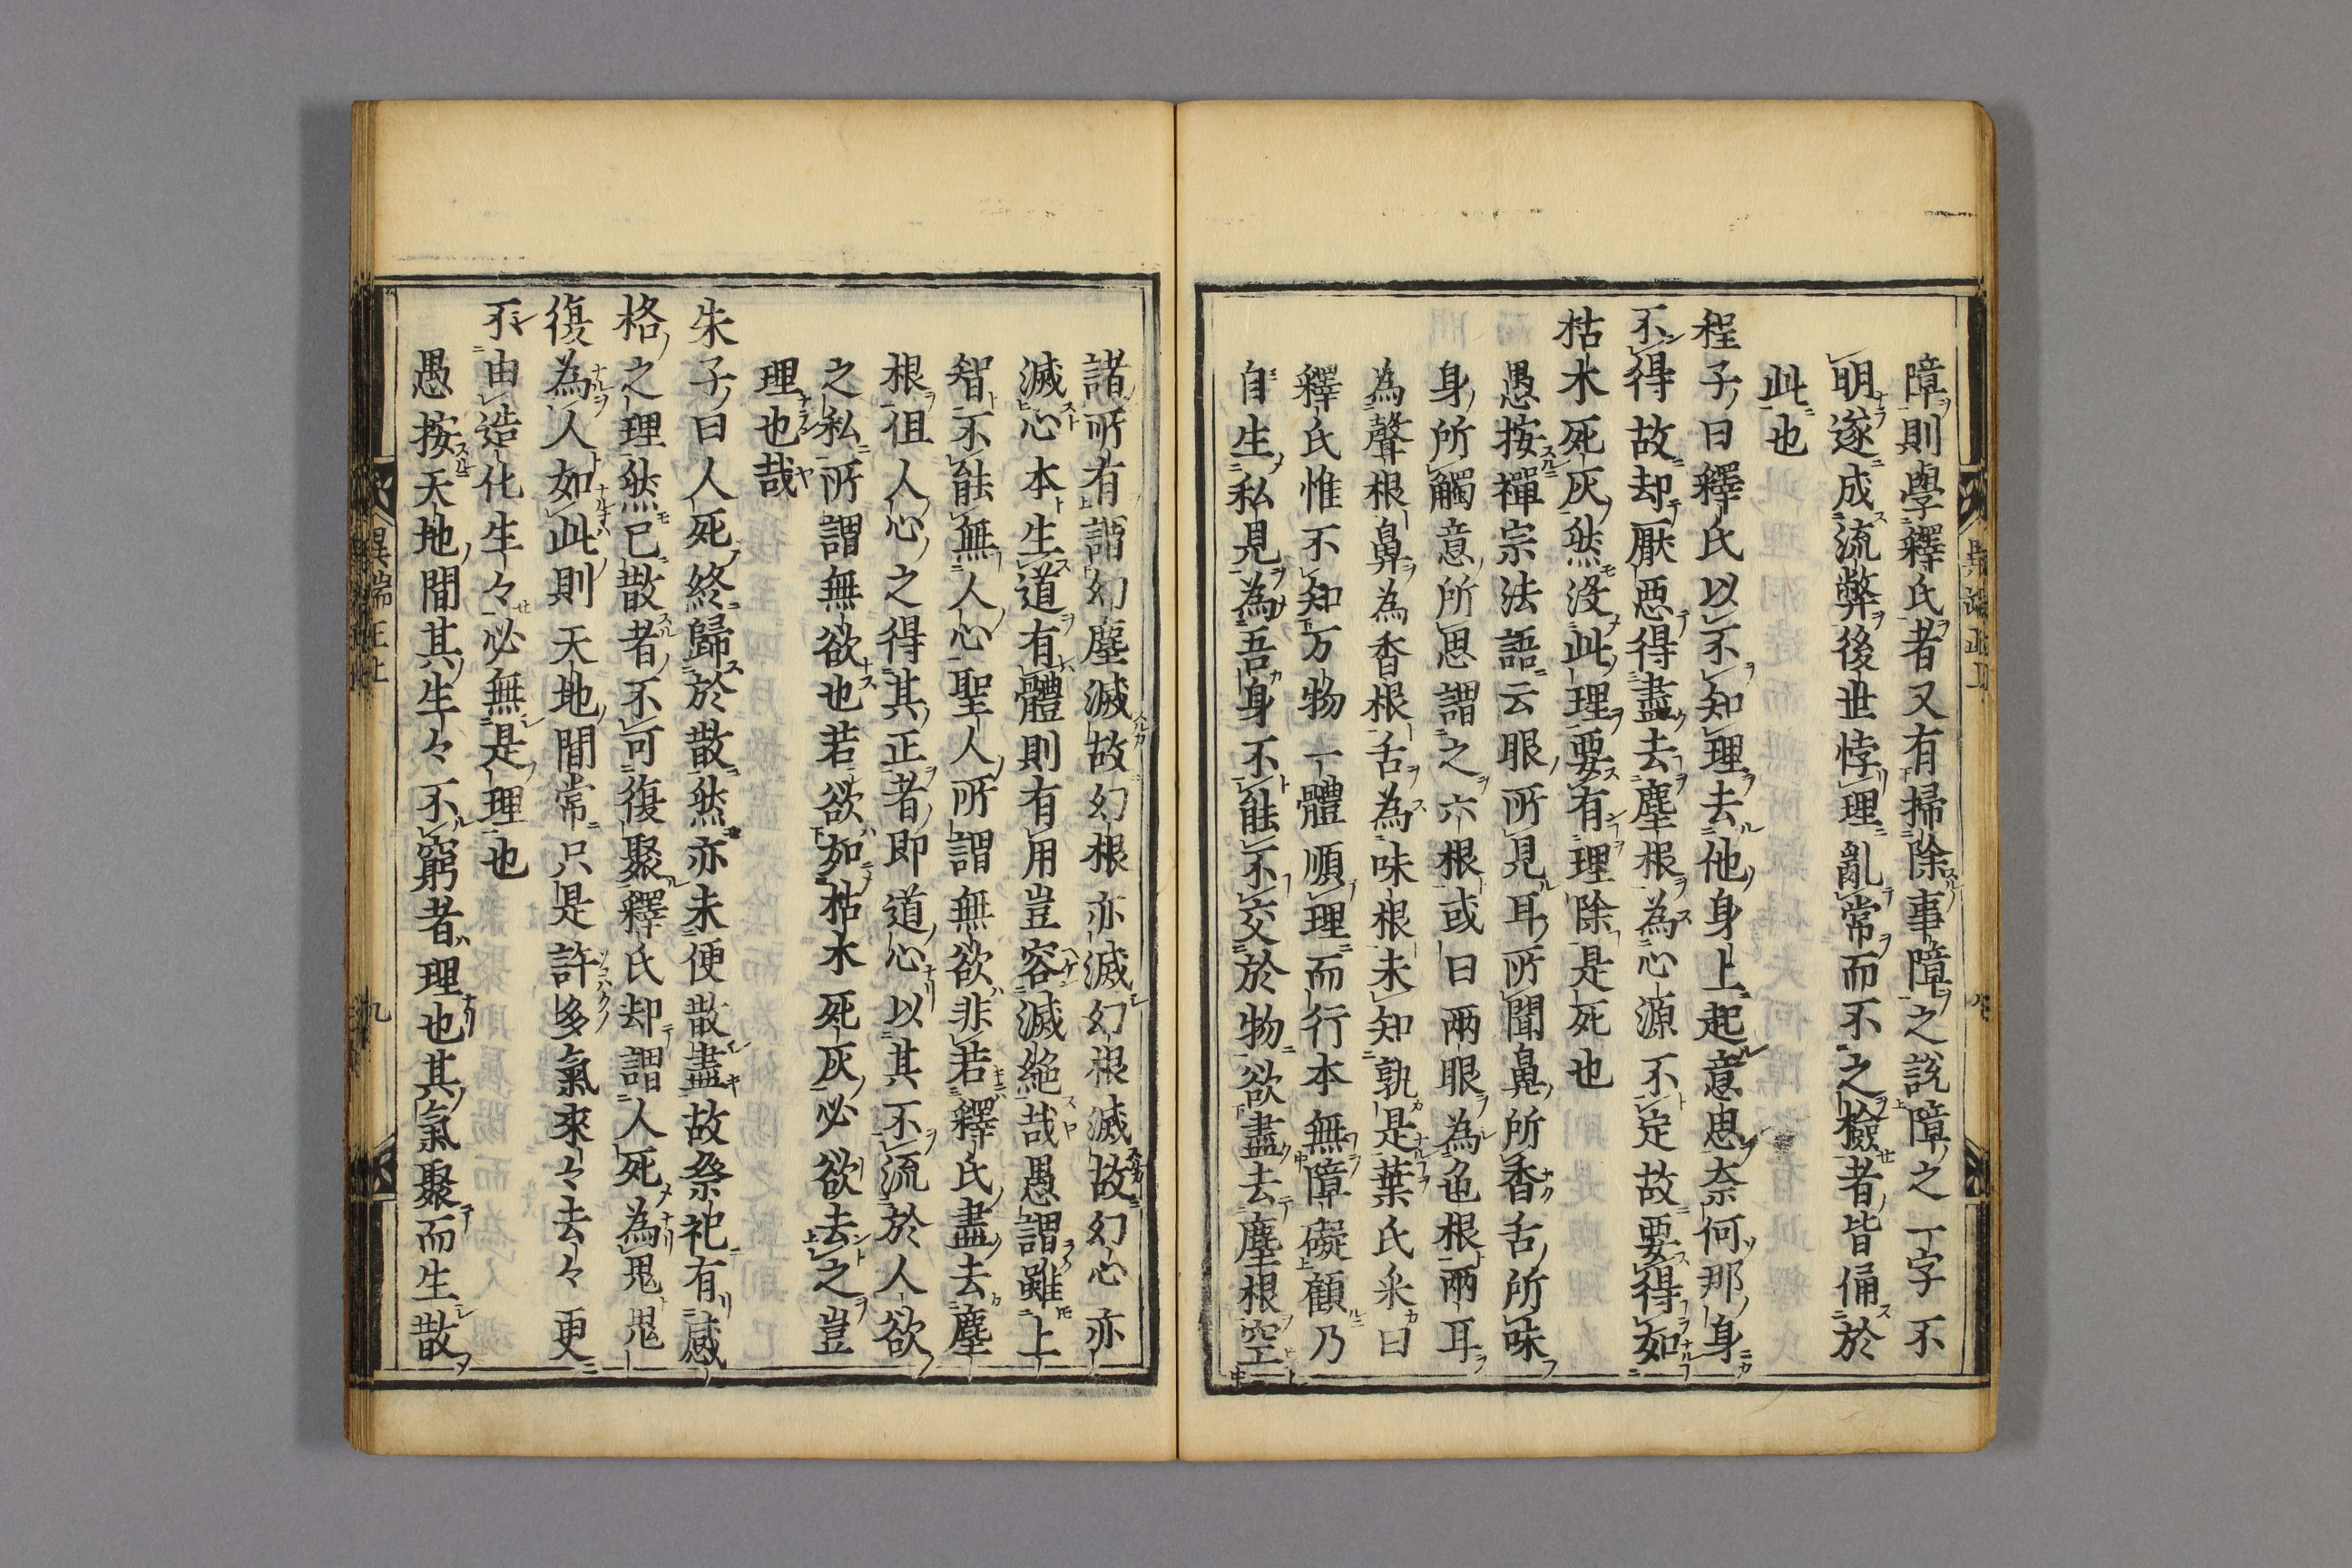 障則學釋氏者又有掃除事障之說障之一字不
明遂成流弊後世悖理亂常而不之檢者皆俑於
此也
程子曰釋氏以不知理去他身上起意思奈何那身
不得故却厭惡得盡去塵根為心源不定故要得如
枯木死灰然沒此理要有理除是死也
愚按禪宗法語云眼所見耳所聞鼻所香舌所味
身所觸意所思謂之六根或曰兩眼為色根兩耳
為聲根鼻為香根舌為味根未知孰是葉氏采曰
釋氏惟不知万物一體順理而行本無障礙顧乃
自生私見為吾身不能不交於物欲盡去塵根空
諸所有謂幻塵滅故幻根亦滅幻根滅故幻心亦
滅心本生道有體則有用豈容滅絶哉愚謂雖上
智不能無人心聖人所謂無欲非若釋氏盡去塵
根但人心之得其正者即道心以其不流於人欲
之私所謂無欲也若欲如枯木死灰必欲去之豈
理也哉
朱子曰人死終歸於散然亦未便散盡故祭祀有感
格之理然已散者不可復聚釋氏却謂人死為鬼鬼
復為人如此則天地間常只是許多氣來々去々更
不由造化生々必無是理也
愚按天地間其生々不窮者理也其氣聚而生散
異端正上
九